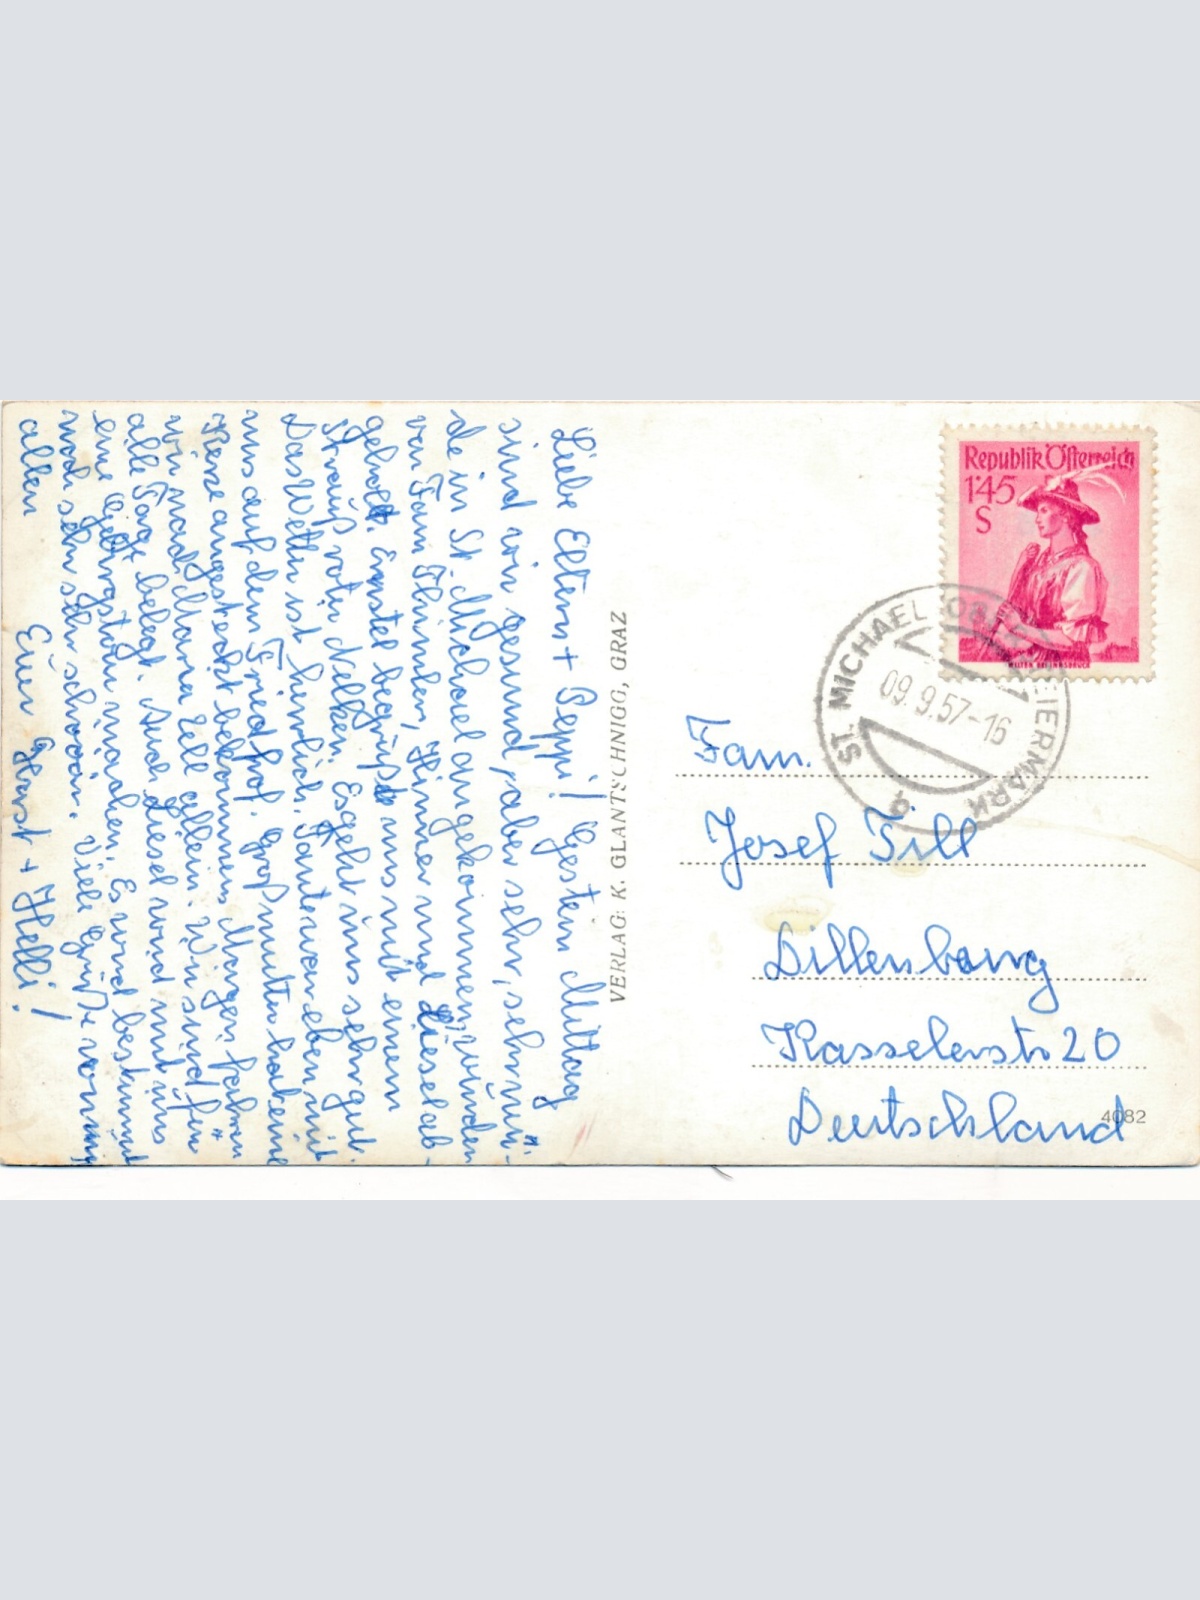 Liebe Eltern + Peppi! Gestern Mittag
sind wir gesund, aber sehr, sehr mü-
de in St. Michael angekommen, wurden
von Fam. Hinner und Liesel ab-
geholt. Ernstel begrüßte uns mit einem
Strauß roter Nelken. Es geht uns sehr gut.
Das Wetter ist herrlich. Tante war eben mit
uns auf dem Friedhof. Großmutter hat eine
Kerze angesteckt bekommen. Morgen fahren
wir nach Maria Zell allein. Wir sind für
alle Tage belegt. Auch Liesel wird mit uns
eine Gebirgstour machen. Es wird bestimmt
noch sehr sehr schöön. Viele Grüße von uns
allen
Euer Horst + Helli!
VERLAG: K. GLANTSCHNIGG, GRAZ
Republik Österreich
1'45
S
ST. MICHAEL
09.9.57-16
STEIERMARK
Fam.
Josef Till
Dillenburg
Kasselerstr 20
Deutschland
4082